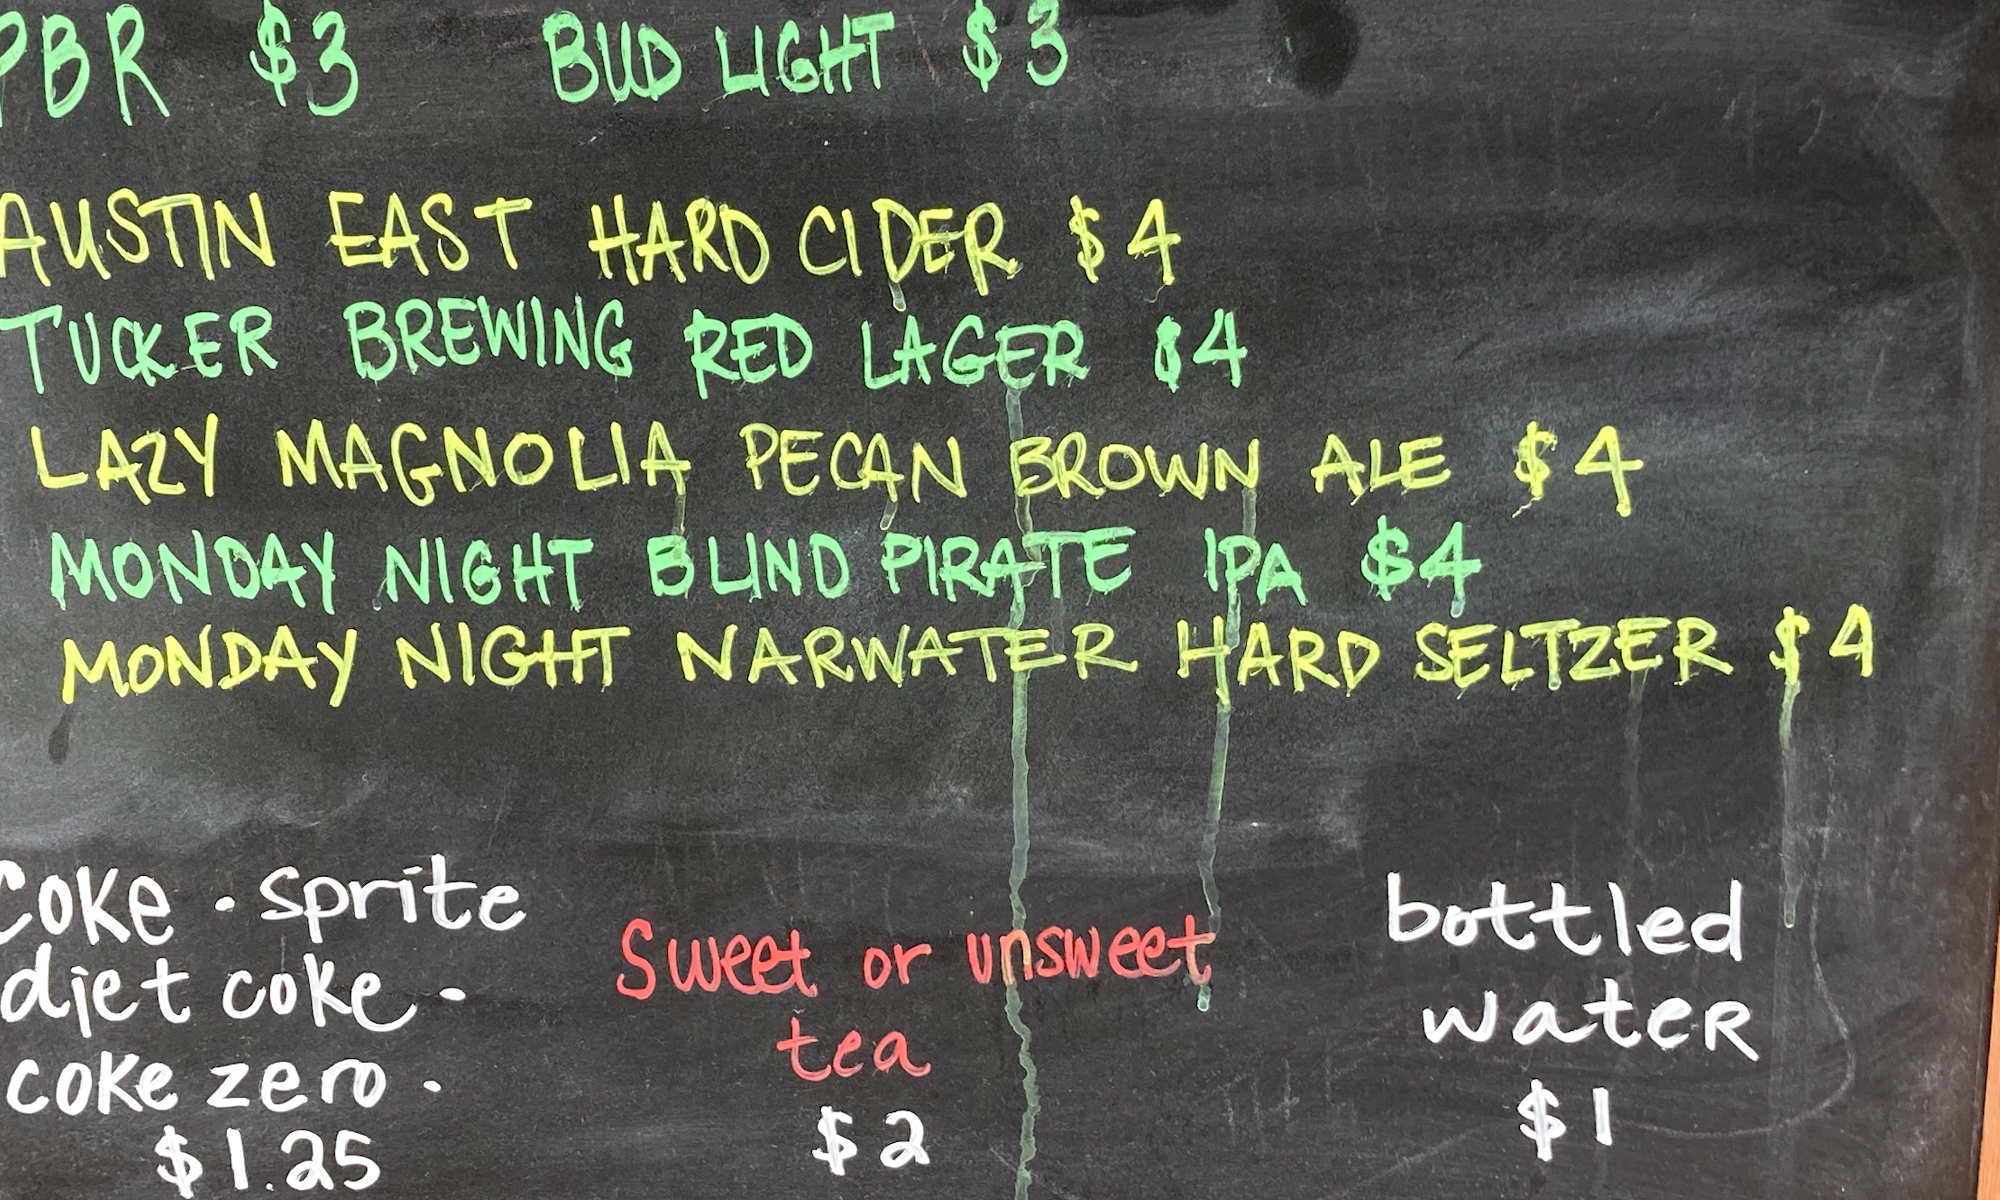 PBR $3 BUD LIGHT $3
AUSTIN EAST HARD CIDER $4
TUCKER BREWING RED LAGER $4
LAZY MAGNOLIA PECAN BROWN ALE $4
MONDAY NIGHT BLIND PIRATE IPA $4
MONDAY NIGHT NARWATER HARD SELTZER $4
COKE · sprite
diet coke ·
coke zero ·
$1.25
Sweet or unsweet
tea
$2
bottled
water
$1